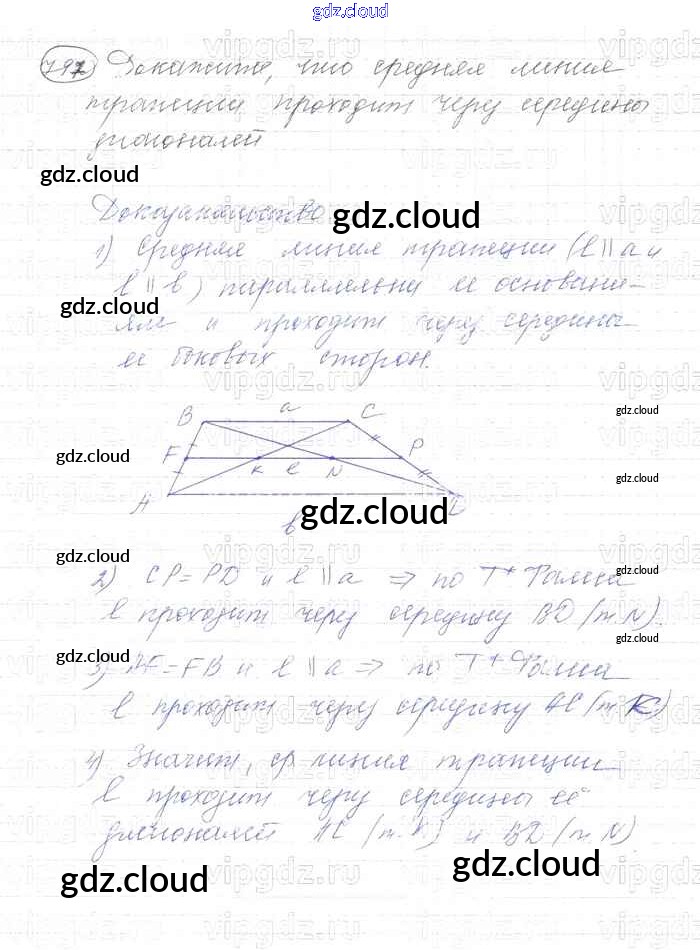 gdz.cloud
797 Докажите, что средняя линия
трапеции проходит через середины
диагоналей
gdz.cloud
Доказательство
gdz.cloud
1) Средняя линия трапеции (l || a и
l || b) параллельна ее основани-
gdz.cloud
ям и проходит через середины
ее боковых сторон.
B a C
gdz.cloud
F K l N P
gdz.cloud
gdz.cloud
A b D
gdz.cloud
gdz.cloud
gdz.cloud
2) CP = PD и l || a => по т. Фалеса
l проходит через середину BD (т. N).
gdz.cloud
gdz.cloud
3) AF = FB и l || a => по т. Фалеса
l проходит через середину AC (т. K)
4) Значит, ср линия трапеции
l проходит через середины её
диагоналей AC (т. K) и BD (т. N).
gdz.cloud
gdz.cloud